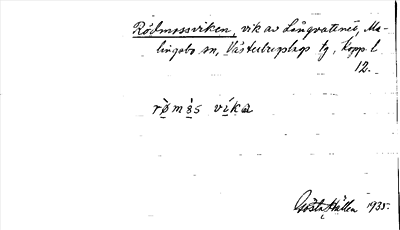 Rödmossviken, vik av Långvattnet, Ma-
lingsbo sn, Västerbergslags tg, Kopp. l.
12.
rø̀mə̣s vìka
Gösta Hallén 1935.